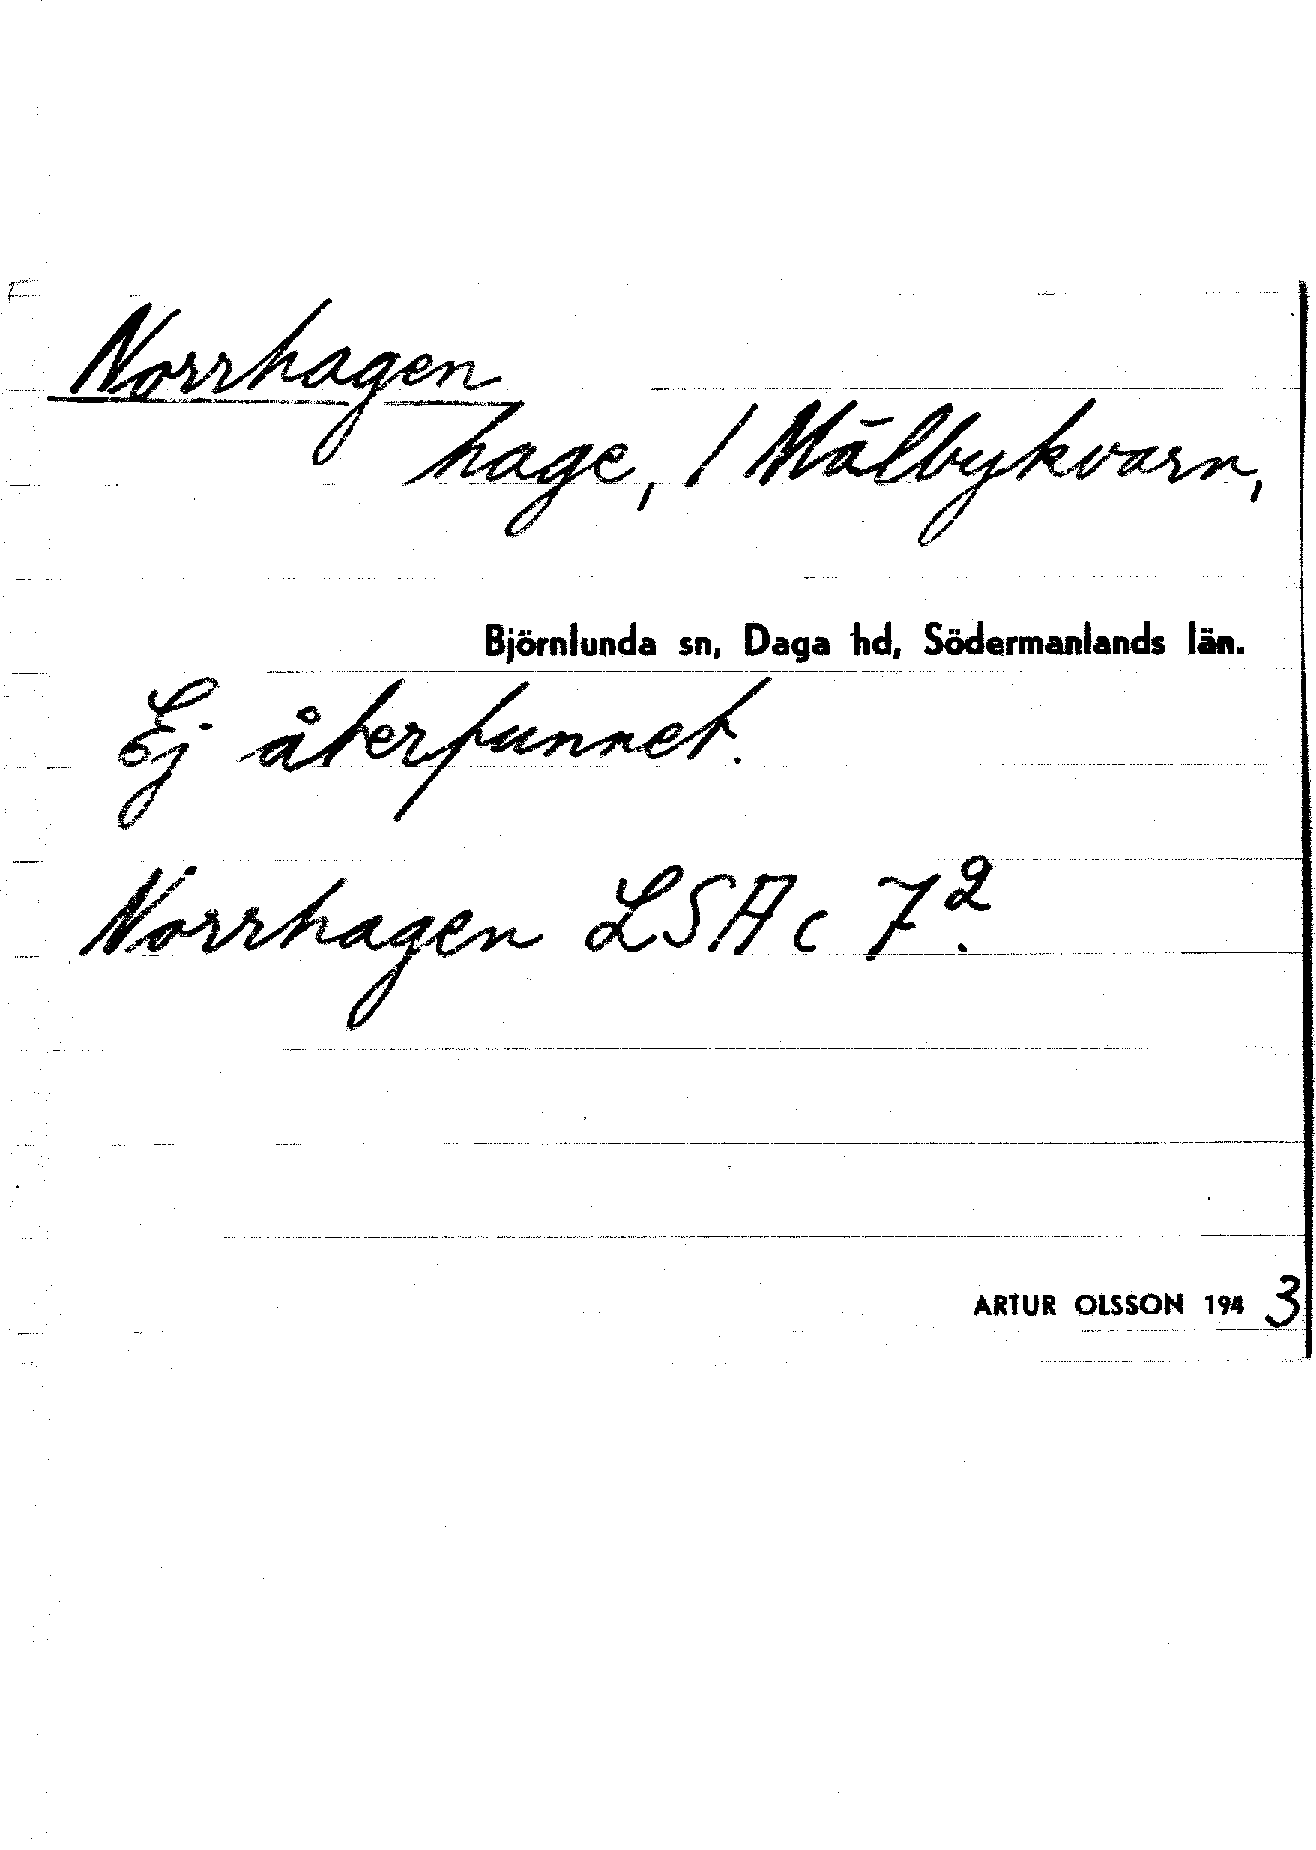 Norrhagen
hage, / Mälbykvarn,
Björnlunda sn, Daga hd, Södermanlands län.
Ej återfunnet.
Norrhagen LSA c 7².
ARTUR OLSSON 1943